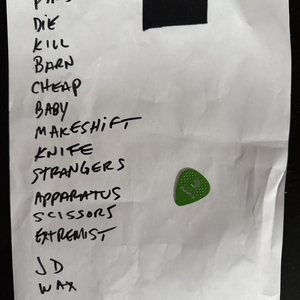 DIE
KILL
BARN
CHEAP
BABY
MAKESHIFT
KNIFE
STRANGERS
APPARATUS
SCISSORS
EXTREMIST
JD
WAX